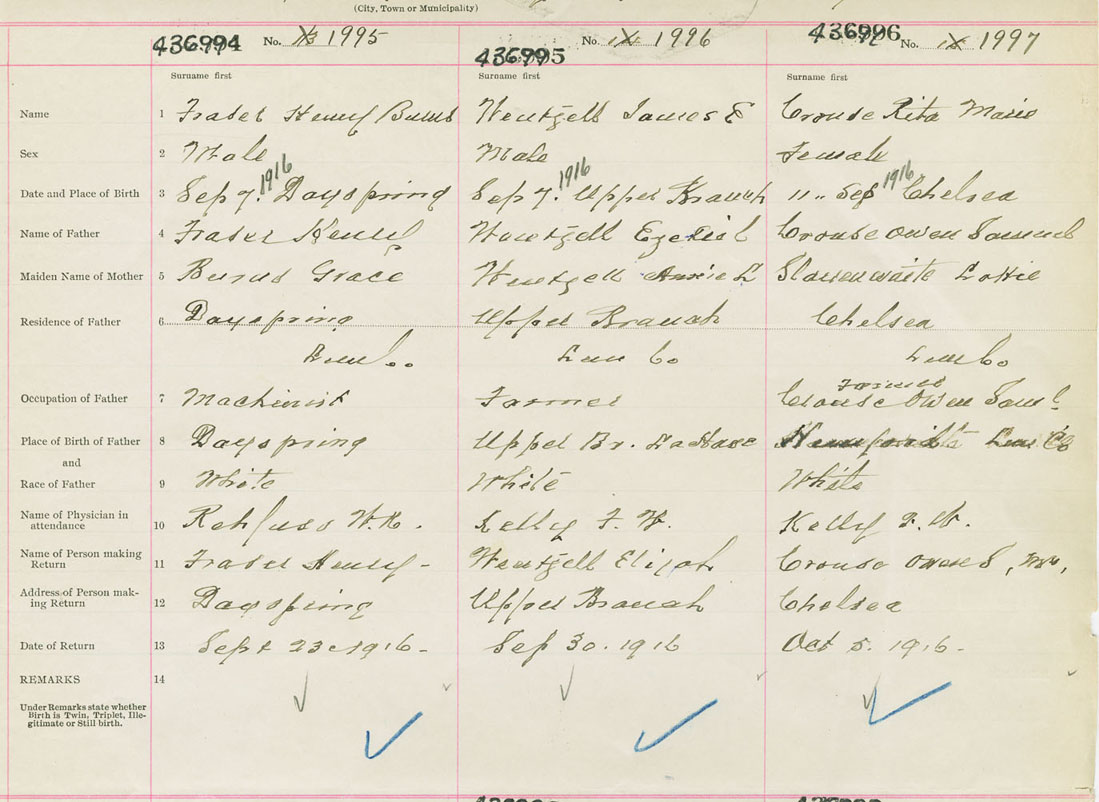 (City, Town or Municipality)
436994 No. 1995 436995 No. 1996 436996 No. 1997
Surname first Surname first Surname first
Name 1 Fraser Henry Burns Wentzell James E Crouse Rita Marie
Sex 2 Male Male Female
1916 1916 1916
Date and Place of Birth 3 Sep 7. Dayspring Sep 7. Upper Branch 11 .. Sep Chelsea
Name of Father 4 Fraser Henry Wentzell Ezekiel Crouse Owen Samuel
Maiden Name of Mother 5 Burns Grace Wentzell Annie L Slauenwaite Lottie
Residence of Father 6 Dayspring Upper Branch Chelsea
Lun Co. Lun Co Lun Co
Farmer
Occupation of Father 7 Machinist Farmer Crouse Owen Saml
Place of Birth of Father 8 Dayspring Upper Br. LaHave Lun Co
and
Race of Father 9 White White White
Name of Physician in
attendance 10 Rehfuss W.N. Kelly F. W. Kelly F. W.
Name of Person making
Return 11 Fraser Henry - Wentzell Elijah Crouse Owen S, Mrs,
Address of Person mak-
ing Return 12 Dayspring Upper Branch Chelsea
Date of Return 13 Sept 23 1916 - Sep 30. 1916 Oct 5. 1916 -
REMARKS 14
Under Remarks state whether
Birth is Twin, Triplet, Ille-
gitimate or Still birth.